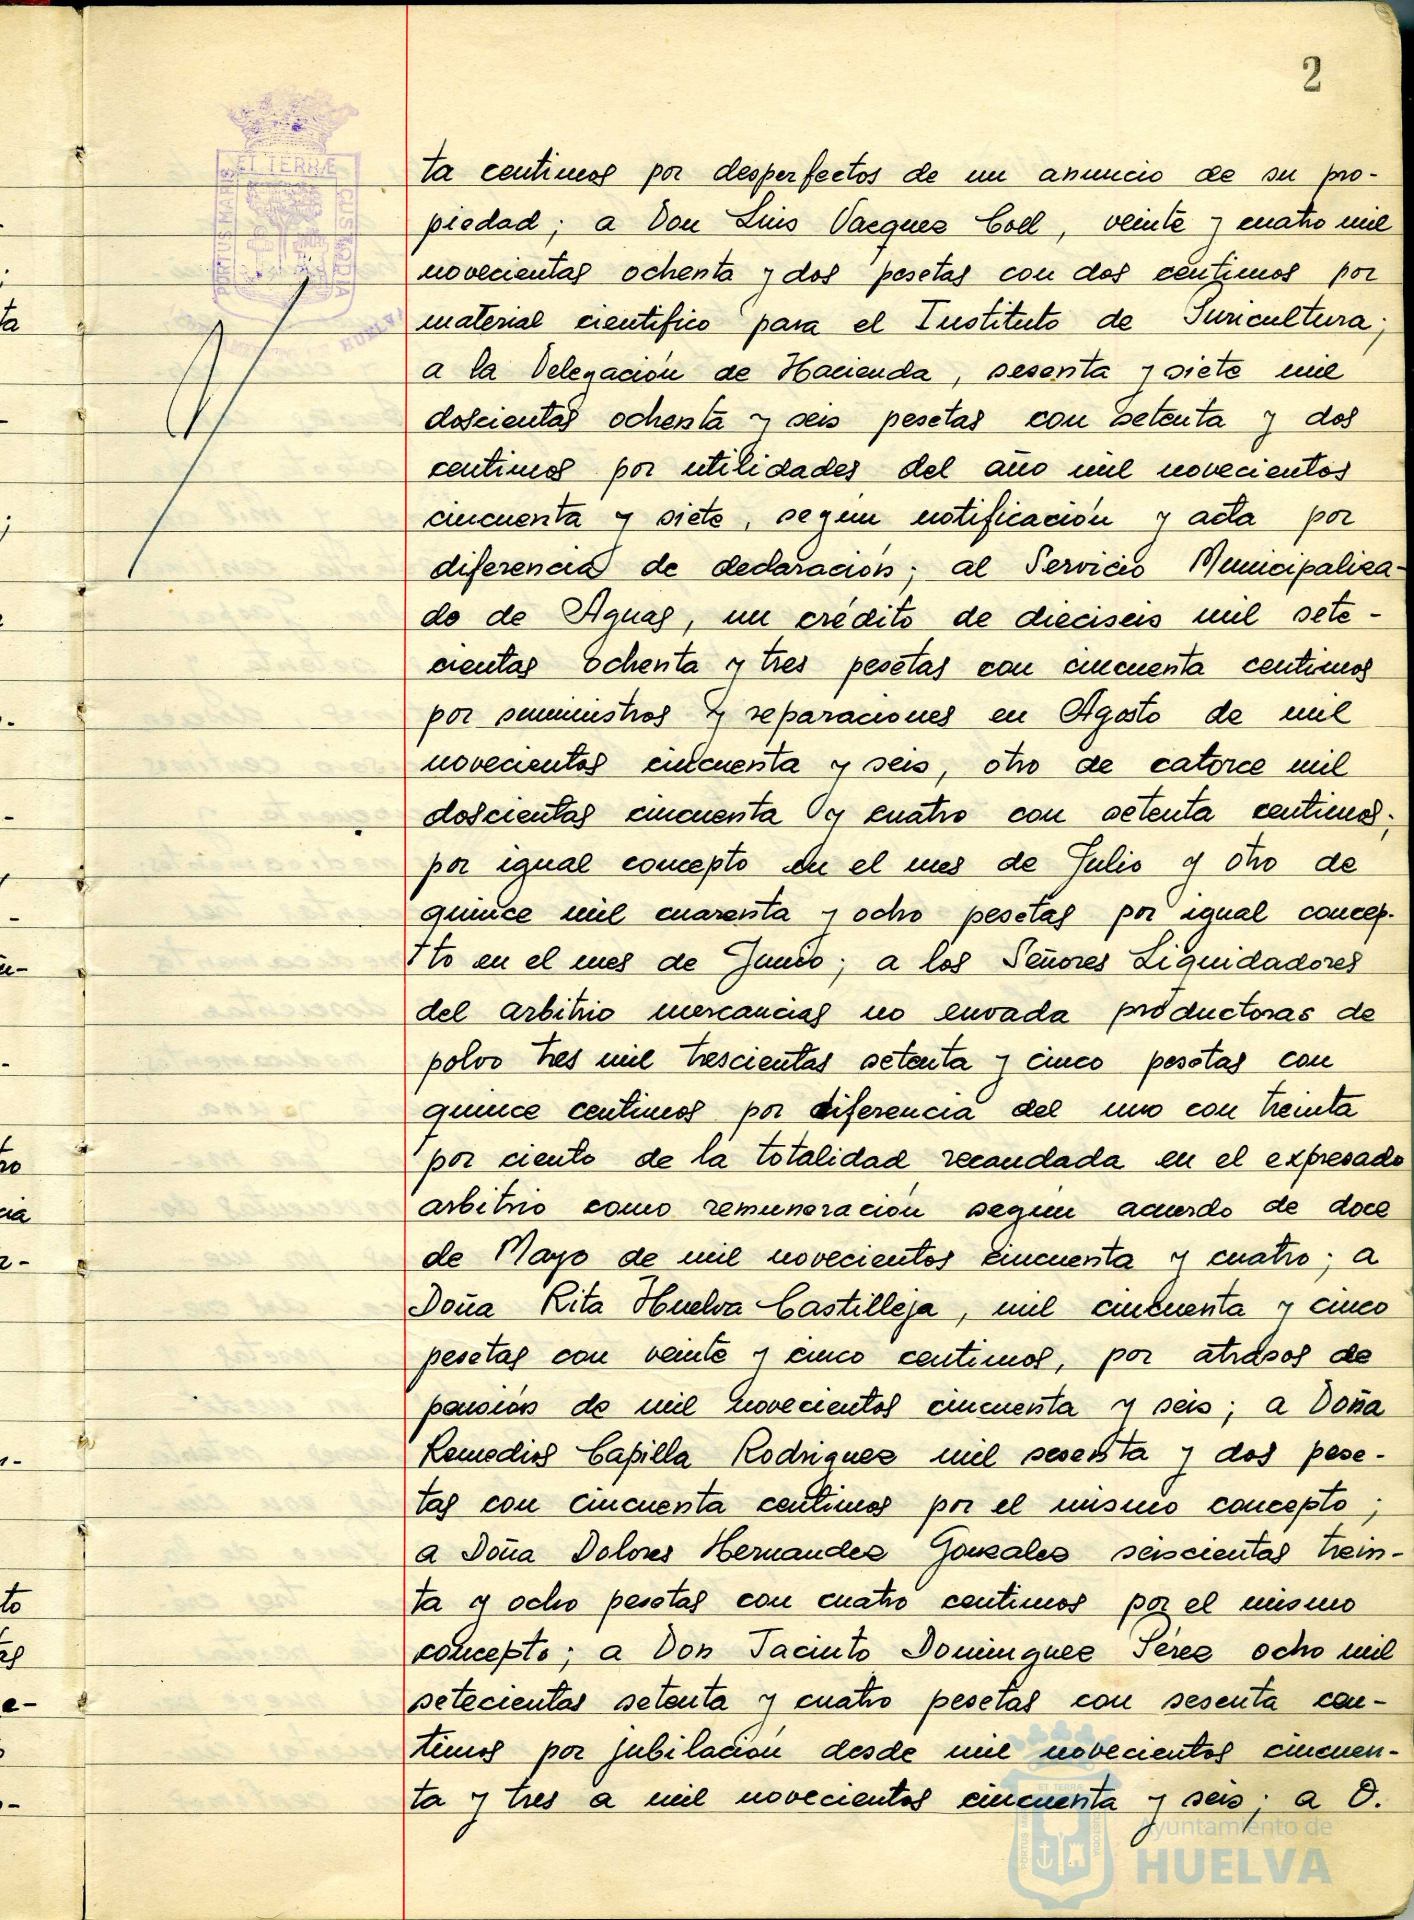 2
ET TERRÆ
PORTUS MARIS
CUSTODIA
HUELVA
ta centimos por desperfectos de un anuncio de su pro-
piedad; a Don Luis Vazquez Coll, veinte y cuatro mil
novecientas ochenta y dos pesetas con dos centimos por
material cientifico para el Instituto de Puricultura;
a la Delegación de Hacienda, sesenta y siete mil
doscientas ochenta y seis pesetas con setenta y dos
centimos por utilidades del año mil novecientos
cincuenta y siete, según notificación y acta por
diferencia de declaración; al Servicio Municipaliza-
do de Aguas, un crédito de dieciseis mil sete-
cientas ochenta y tres pesetas con cincuenta centimos
por suministros y reparaciones en Agosto de mil
novecientos cincuenta y seis, otro de catorce mil
doscientas cincuenta y cuatro con setenta centimos;
por igual concepto en el mes de Julio y otro de
quince mil cuarenta y ocho pesetas por igual concep-
to en el mes de Junio; a los Señores Liquidadores
del arbitrio mercancias no envada productoras de
polvo tres mil trescientas setenta y cinco pesetas con
quince centimos por diferencia del uno con treinta
por ciento de la totalidad recaudada en el expresado
arbitrio como remuneración según acuerdo de doce
de Mayo de mil novecientos cincuenta y cuatro; a
Doña Rita Huelva Castilleja, mil cincuenta y cinco
pesetas con veinte y cinco centimos, por atrasos de
pensión de mil novecientos cincuenta y seis; a Doña
Remedios Capilla Rodriguez mil sesenta y dos pese-
tas con cincuenta centimos por el mismo concepto;
a Doña Dolores Hernandez Gonzalez seiscientas trein-
ta y ocho pesetas con cuatro centimos por el mismo
concepto; a Don Jacinto Dominguez Pérez ocho mil
setecientas setenta y cuatro pesetas con sesenta cen-
timos por jubilación desde mil novecientos cincuen-
ta y tres a mil novecientos cincuenta y seis; a D.
Ayuntamiento de
HUELVA